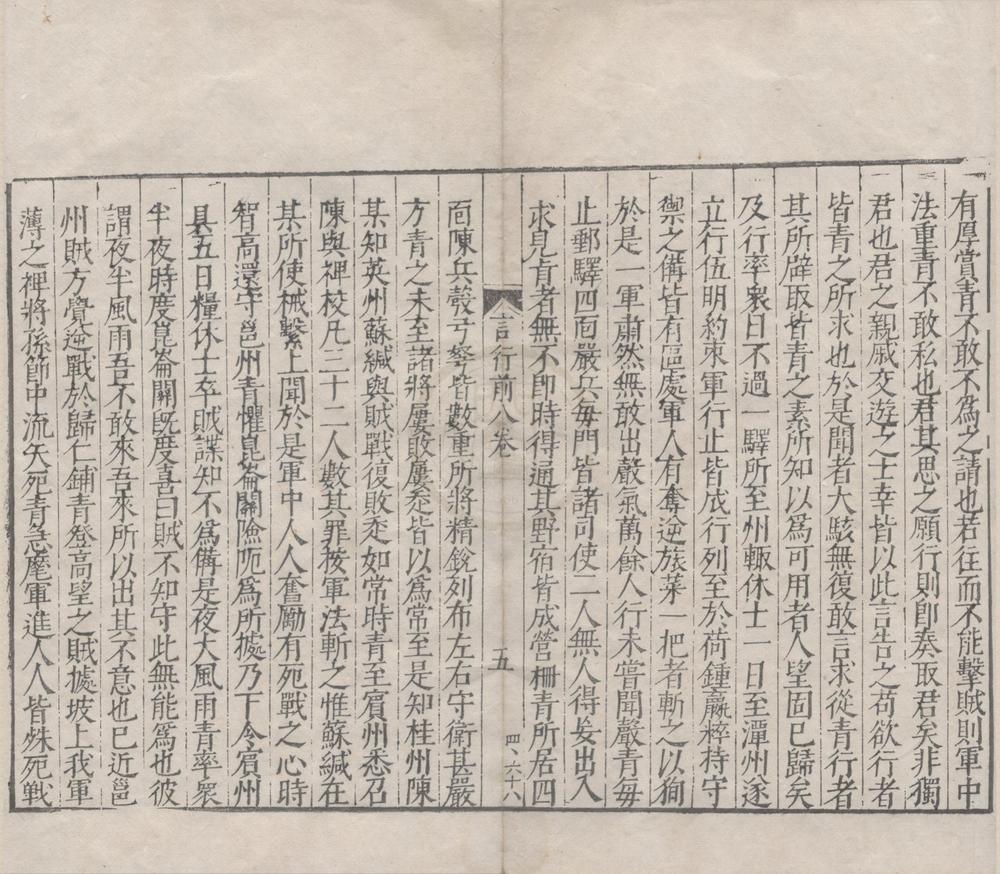 有厚賞青不敢不為之請也若往而不能擊賊則軍中
法重青不敢私也君其思之願行則即奏取君矣非獨
君也君之親戚交遊之士幸皆以此言告之苟欲行者
皆青之所求也於是聞者大駭無復敢言求從青行者
其所辟取皆青之素所知以為可用者人望固已歸矣
及行率衆日不過一驛所至州輒休士一日至潭州遂
立行伍明約束軍行止皆成行列至於荷鍤贏粹持守
禦之備皆有區處軍人有奪逆旅菜一把者斬之以徇
於是一軍肅然無敢出聲氣萬餘人行未嘗聞聲青每
止郵驛四面嚴兵每門皆諸司使二人無人得妄出入
求見青者無不即時得通其野宿皆成營柵青所居四
言行前八卷
五
四、六十八
面陳兵彀弓弩皆數重所將精銳列布左右守衛甚嚴
方青之未至諸將屢敗屢走皆以為常至是知桂州陳
某知英州蘇緘與賊戰復敗走如常時青至賓州悉召
陳與裨校凡三十二人數其罪按軍法斬之惟蘇緘在
某所使械繫上聞於是軍中人人奮勵有死戰之心時
智高還守邕州青懼崑崙關險阨為所據乃下令賓州
具五日糧休士卒賊諜知不為備是夜大風雨青率衆
半夜時度崑崙關既度喜曰賊不知守此無能為也彼
謂夜半風雨吾不敢來吾來所以出其不意也已近邕
州賊方覺逆戰於歸仁鋪青登高望之賊據坡上我軍
薄之裨將孫節中流矢死青急麾軍進人人皆殊死戰